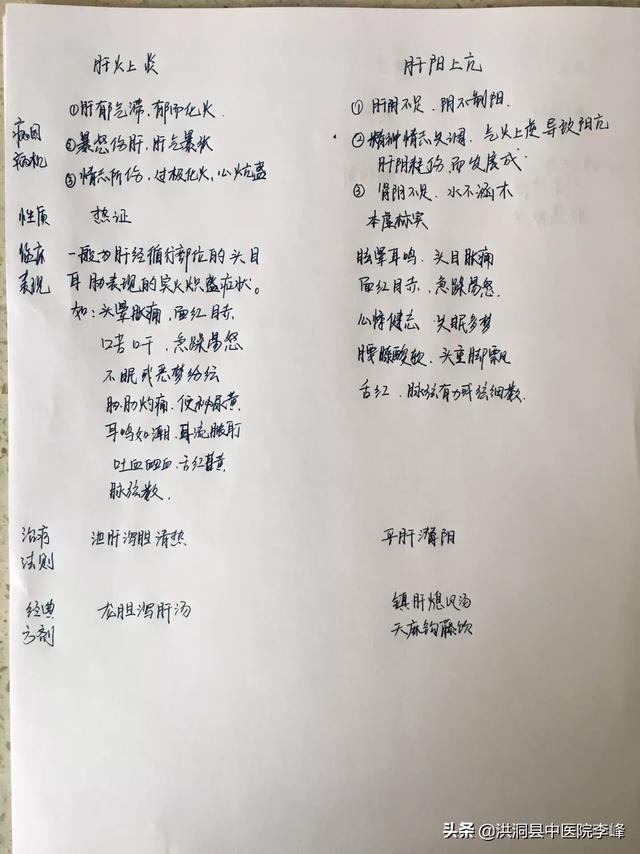 肝火上炎
肝阳上亢
病因
病机
①肝郁气滞,郁而化火
②暴怒伤肝,肝气暴张
③情志所伤,过极化火,心火亢盛
①肝阴不足,阴不制阳.
②精神情志失调,气火上虚导致阳亢
肝阳耗伤而发展成.
③肾阴不足,水不涵木
性质
热证
本虚标实
临床
表现
一般为肝经循行部位的头目
耳肋表现的实火炽盛症状。
如:头晕胀痛,面红目赤.
口苦口干,急躁易怒
不眠或恶梦纷纭
胁肋灼痛,便秘尿黄
耳鸣如潮,耳流脓
吐血衄血,舌红苔黄
脉弦数.
眩晕耳鸣,头目胀痛
面红目赤,急躁易怒.
心悸健忘 失眠多梦
腰膝酸软、头重脚飘
舌红、脉弦有力或弦细数.
治疗
法则
泄肝泻胆清热
平肝潜阳
经典
方剂
龙胆泻肝汤
镇肝熄风汤
天麻钩藤饮
头条@洪洞县中医院李峰